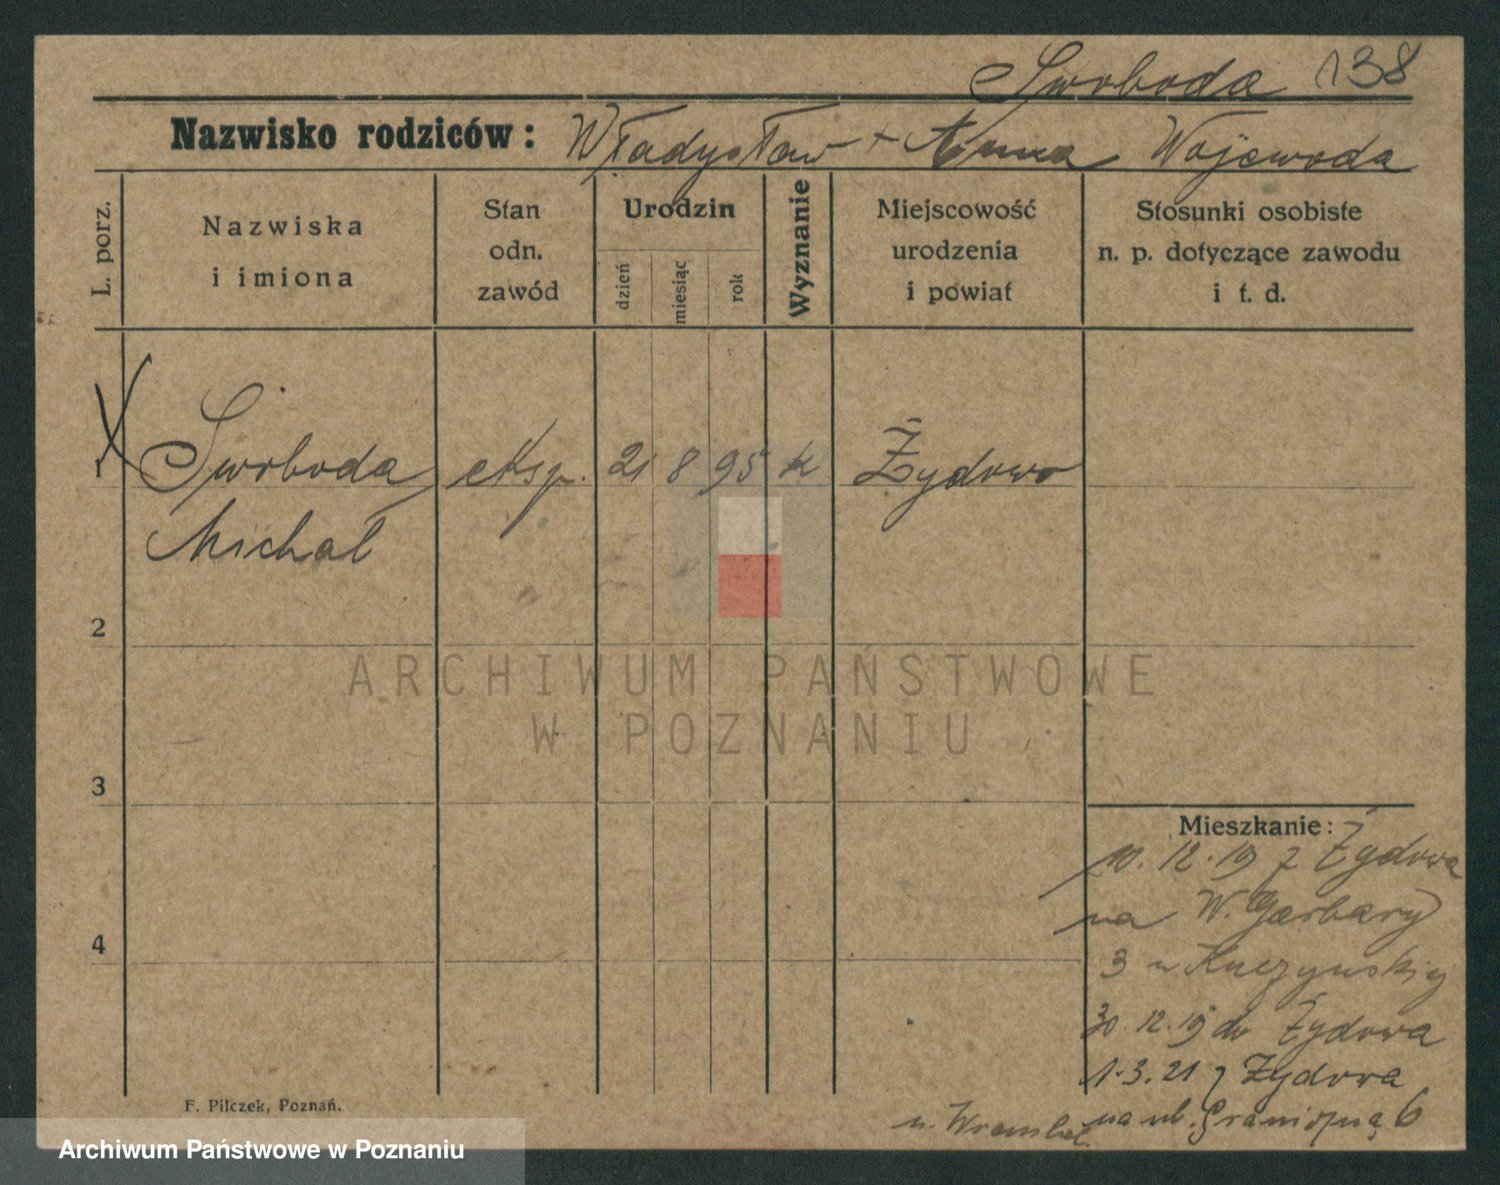 Swoboda 138
Nazwisko rodziców: Władysław + Anna Wojewoda
L. porz.
Nazwiska
i imiona
Stan
odn.
zawód
Urodzin
dzień
miesiąc
rok
Wyznanie
Miejscowość
urodzenia
i powiat
Stosunki osobiste
n. p. dotyczące zawodu
i t. d.
1 Swoboda eksp. 21 8 95 k Żydowo
Michał
2
ARCHIWUM PAŃSTWOWE
W POZNANIU
3
Mieszkanie:
10.12.19 z Żydowa
na W. Garbary
3 u Kuczyńskiej
4
30.12.19 do Żydowa
1.3.21 z Żydowa
na ul. Graniczną 6
u.
F. Pilczek, Poznań.
Archiwum Państwowe w Poznaniu